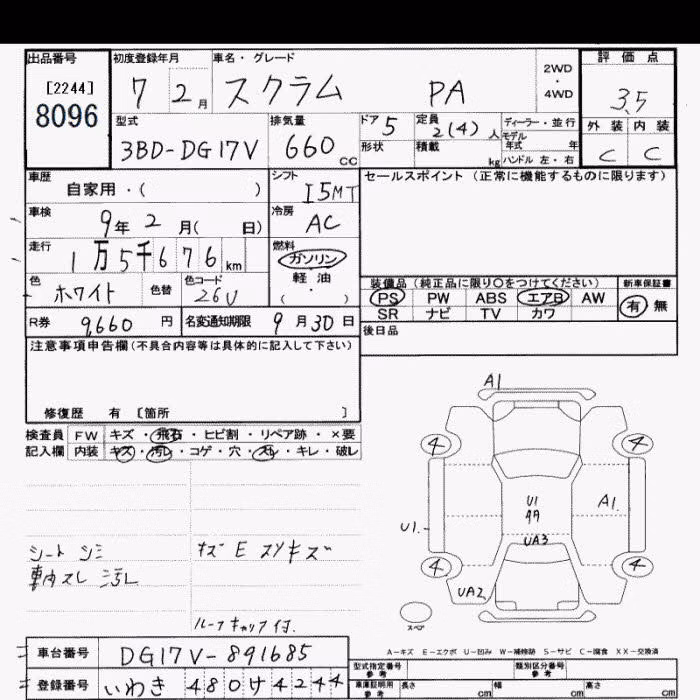 出品番号 初度登録年月 車名・グレード 評価点
[2244] 7 2月 スクラム PA 2WD ・ 4WD 3.5
8096
型式 排気量 ドア 5 定員 2(4)人 ディーラー・並行 外装 内装
3BD-DG17V 660 CC 形状 積載 kg モデル年式 年 C C
ハンドル 左・右
車歴 自家用・( ) シフト I5MT セールスポイント (正常に機能するものに限ります)
車検 9年 2月( 日) 冷房 AC
走行 1万5千676km 燃料 ガソリン
色 ホワイト 色替 色コード 26U 軽油 ( ・ )
装備品 (純正品に限り○をつけてください) 新車保証書
PS PW ABS エアB AW 有 無
SR ナビ TV カワ
R券 9660 円 名変通知期限 9月30日
後日品
注意事項申告欄(不具合内容等は具体的に記入して下さい)
修復歴 有 [箇所 ]
検査員 FW キズ・飛石・ヒビ割・リペア跡・×要
記入欄 内装 キズ・汚レ・コゲ・穴・スレ・キレ・破レ
A1
4 4
U1 A1.
U1.
UA3
4 4
UA2
スペア
シート シミ キズ E スリキズ
スレ 汚レ
ルーフキャップ付.
A-キズ E-エクボ U-凹み W-補修跡 S-サビ C-腐食 XX-交換済
車台番号 DG17V-891685
型式指定番号 参考 類別区分番号 参考
登録番号 いわき 480 け 4244
車庫証明用 参考 長さ cm 幅 cm 高さ cm